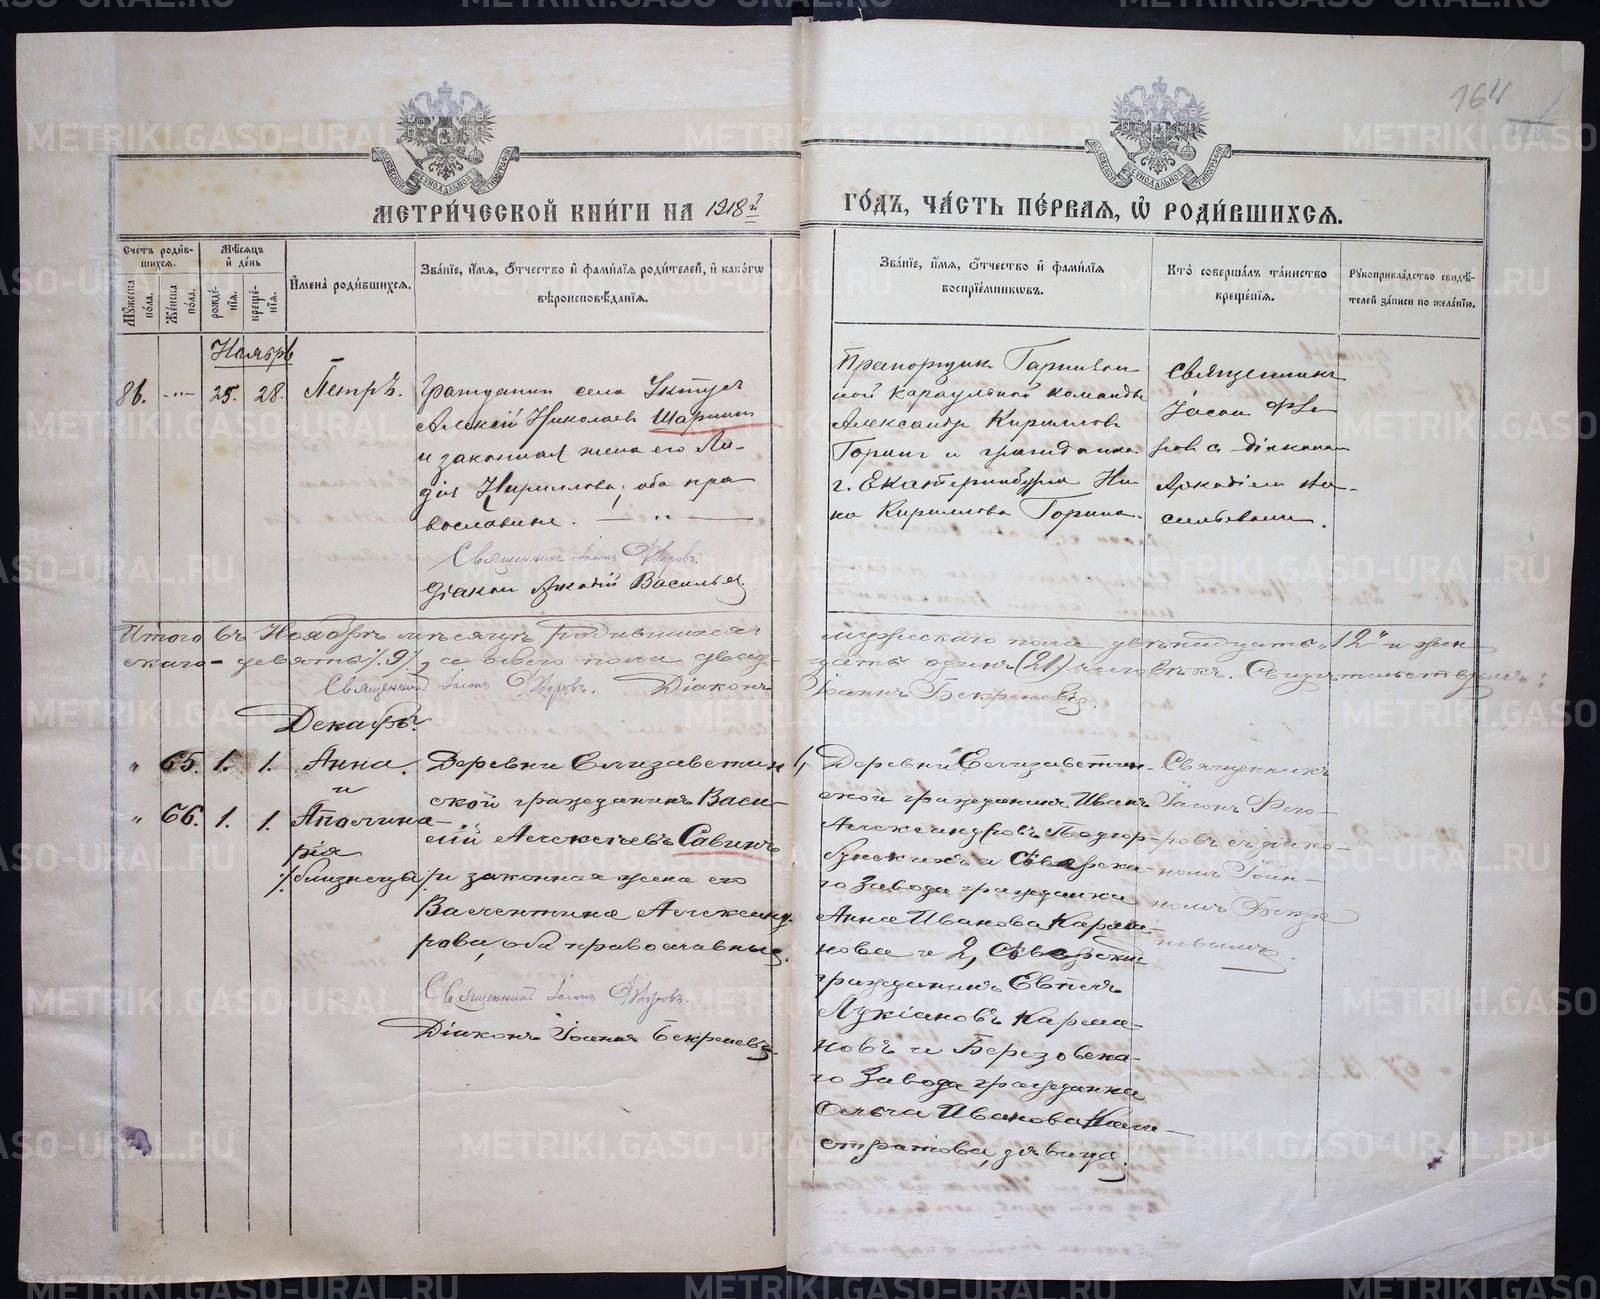 164
МОСКОВСКОЙ СѴНОДАЛЬНОЙ ТИПОГРАФІИ
МОСКОВСКОЙ СѴНОДАЛЬНОЙ ТИПОГРАФІИ
МЕТРИ́ЧЕСКОЙ КНИ́ГИ НА 1918 г.
ГО́ДЪ, ЧА́СТЬ ПЕ́РВАЯ, Ѡ҆ РОДИ́ВШИХСЯ.
Счетъ роди́в-
шихся.
Мꙋжеска по́ла.
Же́нска по́ла.
Мѣ́сяцъ
и҆ де́нь
рожде́-
нїя.
креще́-
нїя.
И҆мена̀ роди́вшихся.
Зва́нїе, и҆́мя, ѻ҆́тчество и҆ фами́лїя роди́телей, и҆ како́гѡ
вѣроисповѣ́данїя.
Зва́нїе, и҆́мя, ѻ҆́тчество и҆ фами́лїя
воспрїе́мникѡвъ.
Кто̀ соверша́лъ та́инство
креще́нїя.
Рꙋкоприкла́дство свидѣ́-
телей за́писи по жела́нїю.
Ноябрь
86. -"- 25. 28. Петръ.
Гражданин села Уктус
Алексій Николаев Шаришн
и законная жена его Ли-
дія Кириллова; оба пра
вославные. — " —
Священникъ Іасонъ Ѳедоровъ.
Діакон Аркадій Васильев.
Прапорщик Гарнизон
ной караульной команды
Александр Кириллов
Горин и гражданка
г. Екатеринбурга Ни
на Кириллова Горина.
Священник
Іасон Фео
ров с діаконом
Аркадіем Ва-
сильевым.
Итого въ Ноябрѣ мѣсяцѣ родившихся мужескаго пола двѣнадцать "12" и жен
скаго - девять /9/, а обоего пола двад- цать одинъ (21) человѣкъ. Свидѣтельствуемъ:
Священникъ Іасонъ Ѳедоровъ. Діаконъ Іоаннъ Бекреневъ.
Декабрь.
" 65. 1. 1. Анна.
и
" 66. 1. 1. Аполлина-
рія
/близнецы/
Деревни Елизаветин
ской гражданинъ Васи-
лій Алексѣевъ Савинъ
и законная жена его
Валентина Александ-
рова, оба православные.
Священникъ Іасонъ Ѳедоровъ.
Діаконъ Іоаннъ Бекреневъ.
1, Деревни Елизаветин-
ской гражданинъ Иванъ
Александровъ Подкор-
и Сысертска-
го Завода гражданка
Анна Иванова Карма-
нова и 2, Сысертскій
гражданинъ Евгеній
Лукіановъ Карма-
новъ и Березовска-
го Завода гражданка
Ольга Иванова Кали-
стратова, дѣвица.
Священникъ
Іасонъ Ѳедо-
ровъ съ діако-
номъ Іоан-
номъ Бекре
невымъ.
METRIKI.GASO-URAL.RU